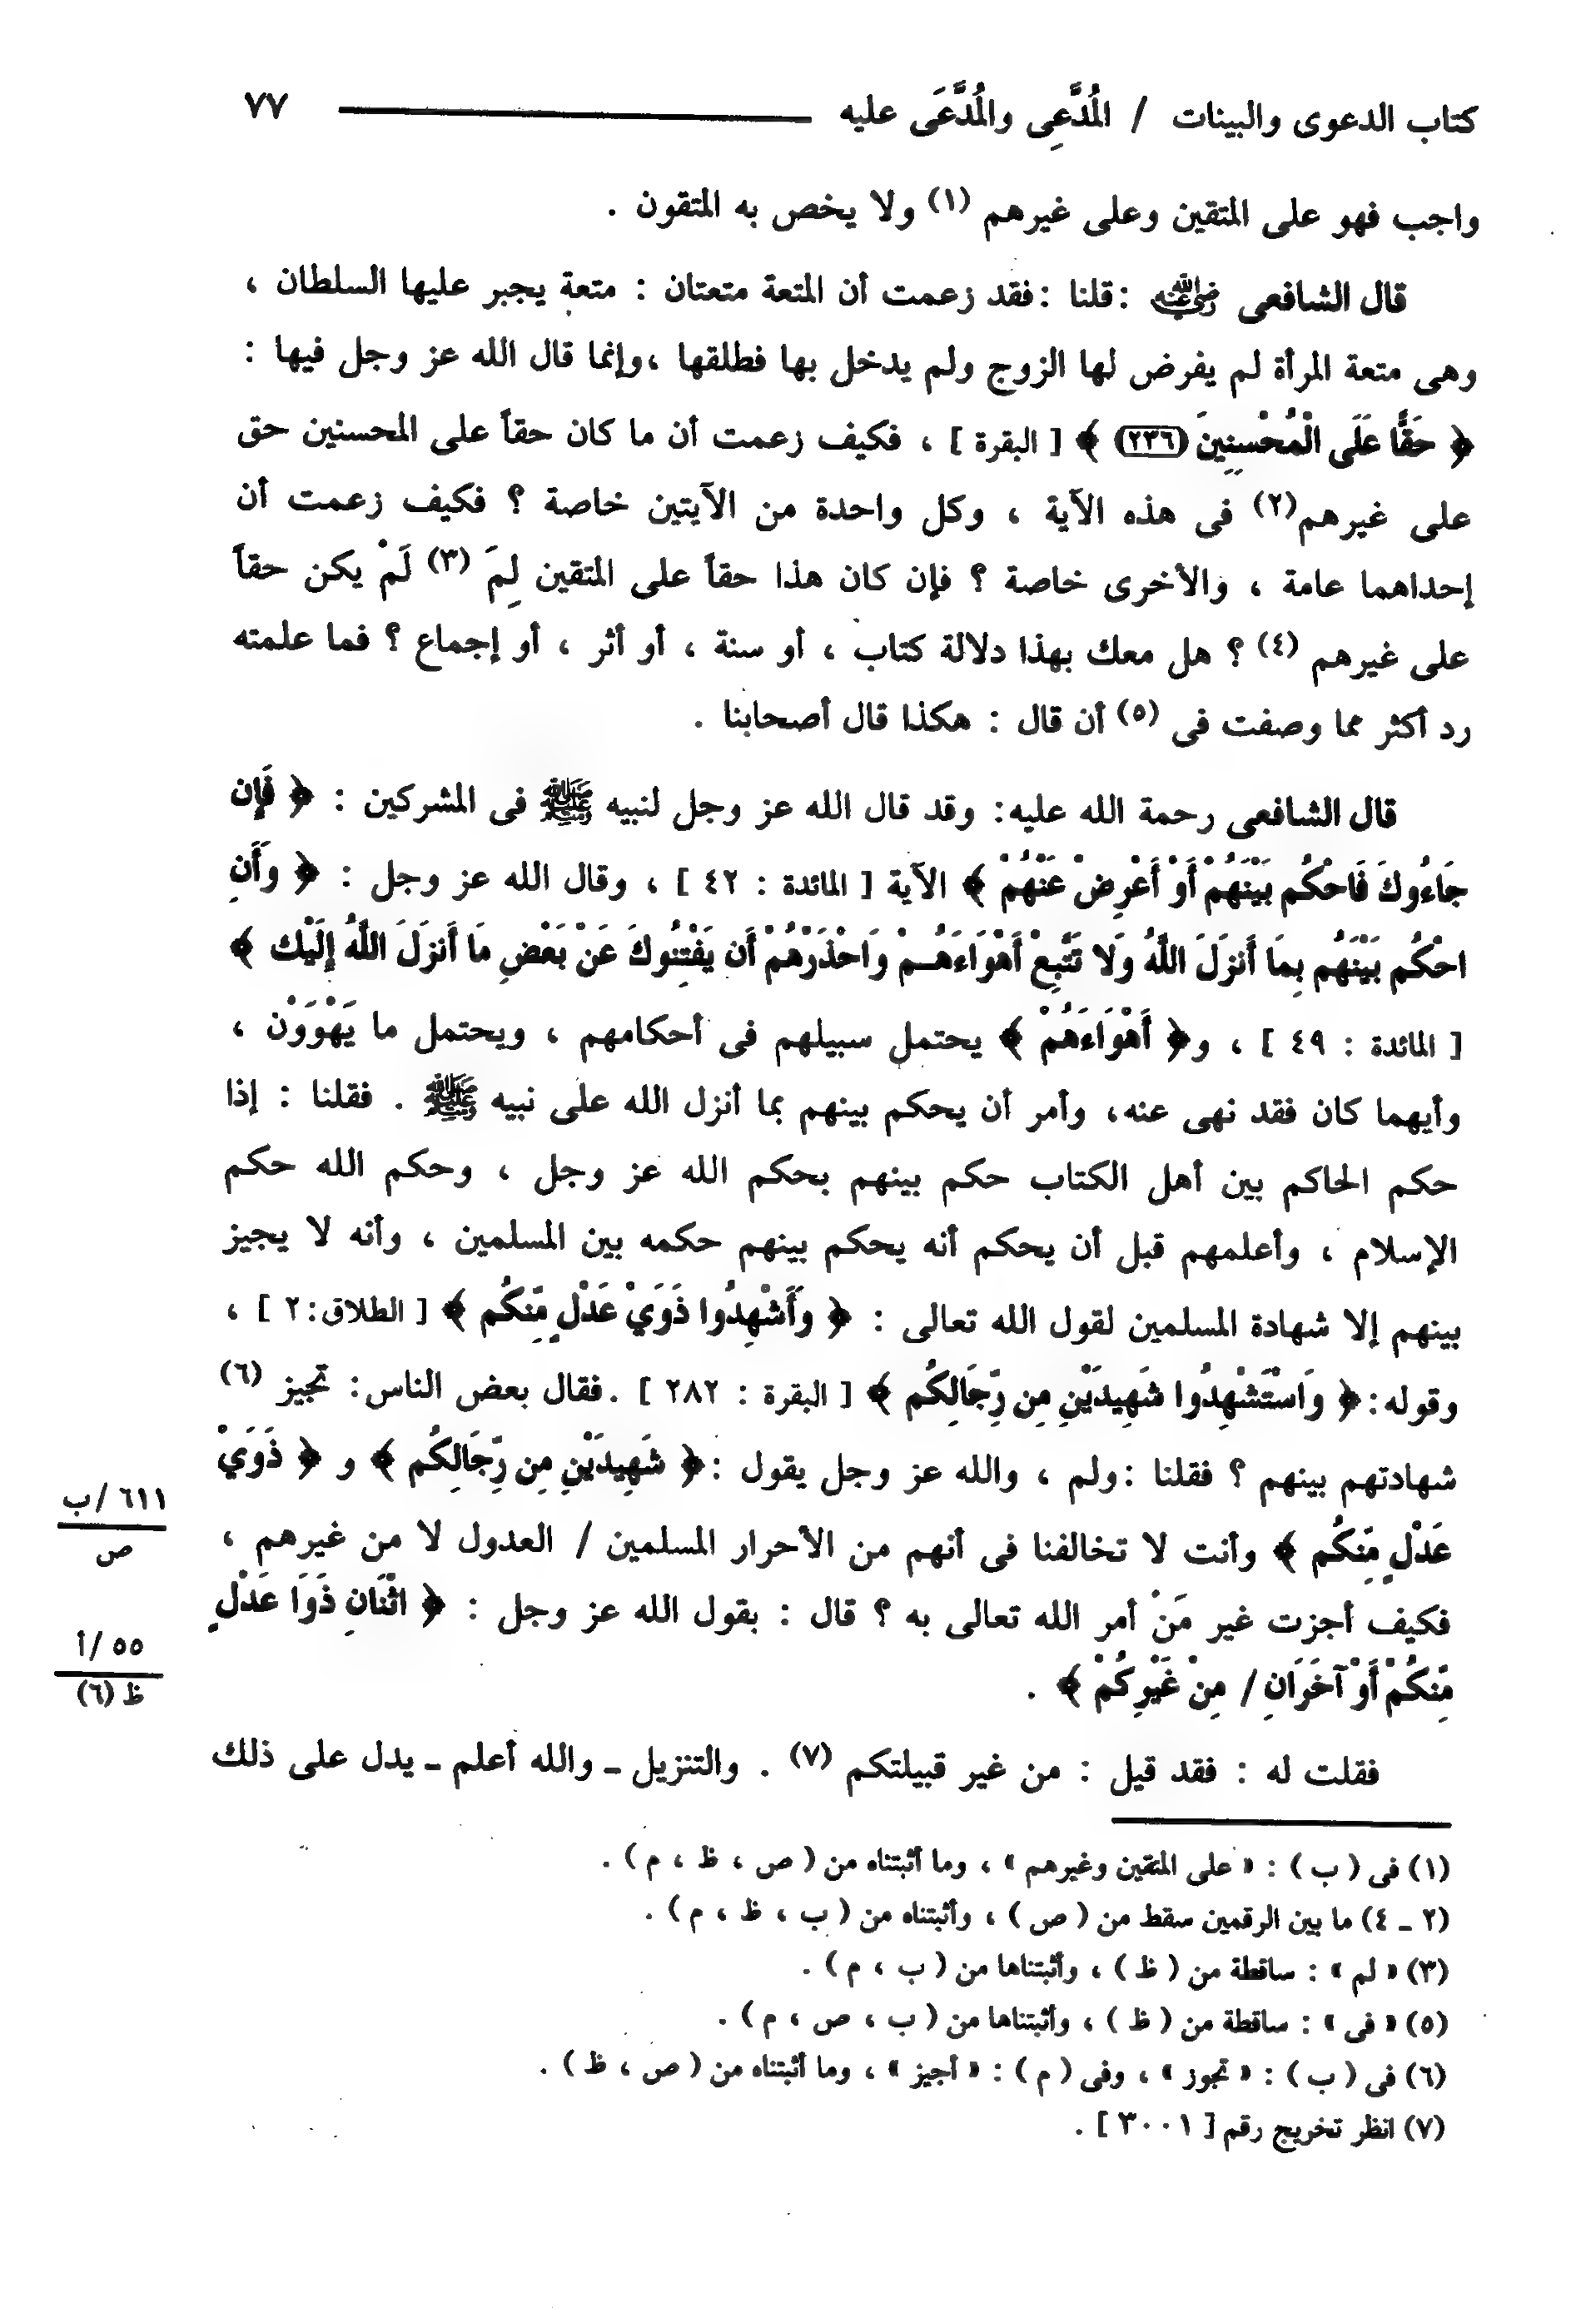 كتاب الدعوى والبينات / المُدَّعِى والمُدَّعَى عليه ٧٧
واجب فهو على المتقين وعلى غيرهم (١) ولا يخص به المتقون .
قال الشافعى رضي الله عنه : قلنا : فقد زعمت أن المتعة متعتان : متعة يجبر عليها السلطان ،
وهى متعة المرأة لم يفرض لها الزوج ولم يدخل بها فطلقها ، وإنما قال الله عز وجل فيها :
﴿ حَقًّا عَلَى الْمُحْسِنِينَ (٢٣٦) ﴾ [ البقرة ] ، فكيف زعمت أن ما كان حقاً على المحسنين حق
على غيرهم(٢) فى هذه الآية ، وكل واحدة من الآيتين خاصة ؟ فكيف زعمت أن
إحداهما عامة ، والأخرى خاصة ؟ فإن كان هذا حقاً على المتقين لِمَ (٣) لَمْ يكن حقاً
على غيرهم (٤) ؟ هل معك بهذا دلالة كتاب ، أو سنة ، أو أثر ، أو إجماع ؟ فما علمته
رد أكثر مما وصفت فى (٥) أن قال : هكذا قال أصحابنا .
قال الشافعى رحمة الله عليه: وقد قال الله عز وجل لنبيه ﷺ فى المشركين : ﴿ فَإِن
جَاءُوكَ فَاحْكُم بَيْنَهُمْ أَوْ أَعْرِضْ عَنْهُمْ ﴾ الآية [ المائدة : ٤٢ ] ، وقال الله عز وجل : ﴿ وَأَنِ
احْكُم بَيْنَهُم بِمَا أَنزَلَ اللَّهُ وَلا تَتَّبِعْ أَهْوَاءَهُمْ وَاحْذَرْهُمْ أَن يَفْتِنُوكَ عَنْ بَعْضِ مَا أَنزَلَ اللَّهُ إِلَيْك ﴾
[ المائدة : ٤٩ ] ، و﴿ أَهْوَاءَهُمْ ﴾ يحتمل سبيلهم فى أحكامهم ، ويحتمل ما يَهْوَوْن ،
وأيهما كان فقد نهى عنه، وأمر أن يحكم بينهم بما أنزل الله على نبيه ﷺ . فقلنا : إذا
حكم الحاكم بين أهل الكتاب حكم بينهم بحكم الله عز وجل ، وحكم الله حكم
الإسلام ، وأعلمهم قبل أن يحكم أنه يحكم بينهم حكمه بين المسلمين ، وأنه لا يجيز
بينهم إلا شهادة المسلمين لقول الله تعالى : ﴿ وَأَشْهِدُوا ذَوَيْ عَدْلٍ مِّنكُم ﴾ [ الطلاق:٢ ] ،
وقوله: ﴿ وَاسْتَشْهِدُوا شَهِيدَيْنِ مِن رِّجَالِكُم ﴾ [ البقرة : ٢٨٢ ] . فقال بعض الناس: تجيز (٦)
شهادتهم بينهم ؟ فقلنا : ولم ، والله عز وجل يقول : ﴿ شَهِيدَيْنِ مِن رِّجَالِكُم ﴾ و ﴿ ذَوَيْ
٦١١ /ب
عَدْلٍ مِّنكُم ﴾ وأنت لا تخالفنا فى أنهم من الأحرار المسلمين / العدول لا من غيرهم ،
ص
فكيف أجزت غير مَنْ أمر الله تعالى به ؟ قال : بقول الله عز وجل : ﴿ اثْنَانِ ذَوَا عَدْلٍ
٥٥ /أ
مِّنكُمْ أَوْ آخَرَانِ / مِنْ غَيْرِكُمْ ﴾ .
ظ (٦)
فقلت له : فقد قيل : من غير قبيلتكم (٧) . والتنزيل ـ والله أعلم ـ يدل على ذلك
(١) فى ( ب ) : « على المتقين وغيرهم » ، وما أثبتناه من ( ص ، ظ ، م ) .
(٢ ـ ٤) ما بين الرقمين سقط من ( ص ) ، وأثبتناه من ( ب ، ظ ، م ) .
(٣) « لم » : ساقطة من ( ظ ) ، وأثبتناها من ( ب ، م ) .
(٥) « فى » : ساقطة من ( ظ ) ، وأثبتناها من ( ب ، ص ، م ) .
(٦) فى ( ب ) : « تجوز » ، وفى ( م ) : « أجيز » ، وما أثبتناه من ( ص ، ظ ) .
(٧) انظر تخريج رقم [ ٣٠٠١ ] .